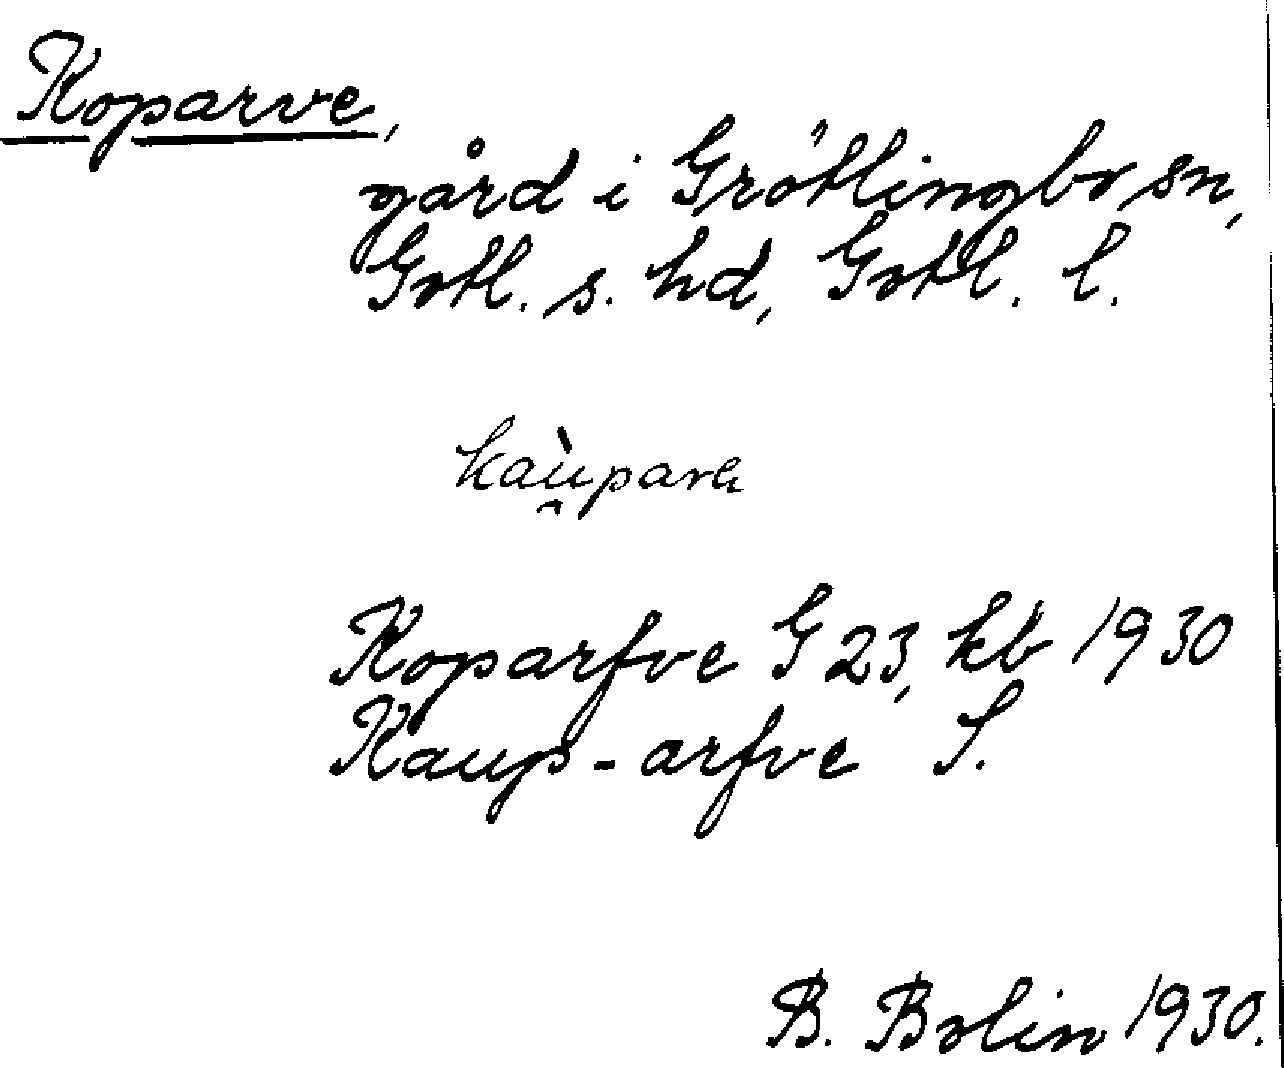 Koparve,
gård i Grötlingbo sn,
Gotl. s. hd, Gotl. l.
kaù̯parvɛ
Koparfve G 23, kb 1930
Kaup-arfve S.
B. Bolin 1930.